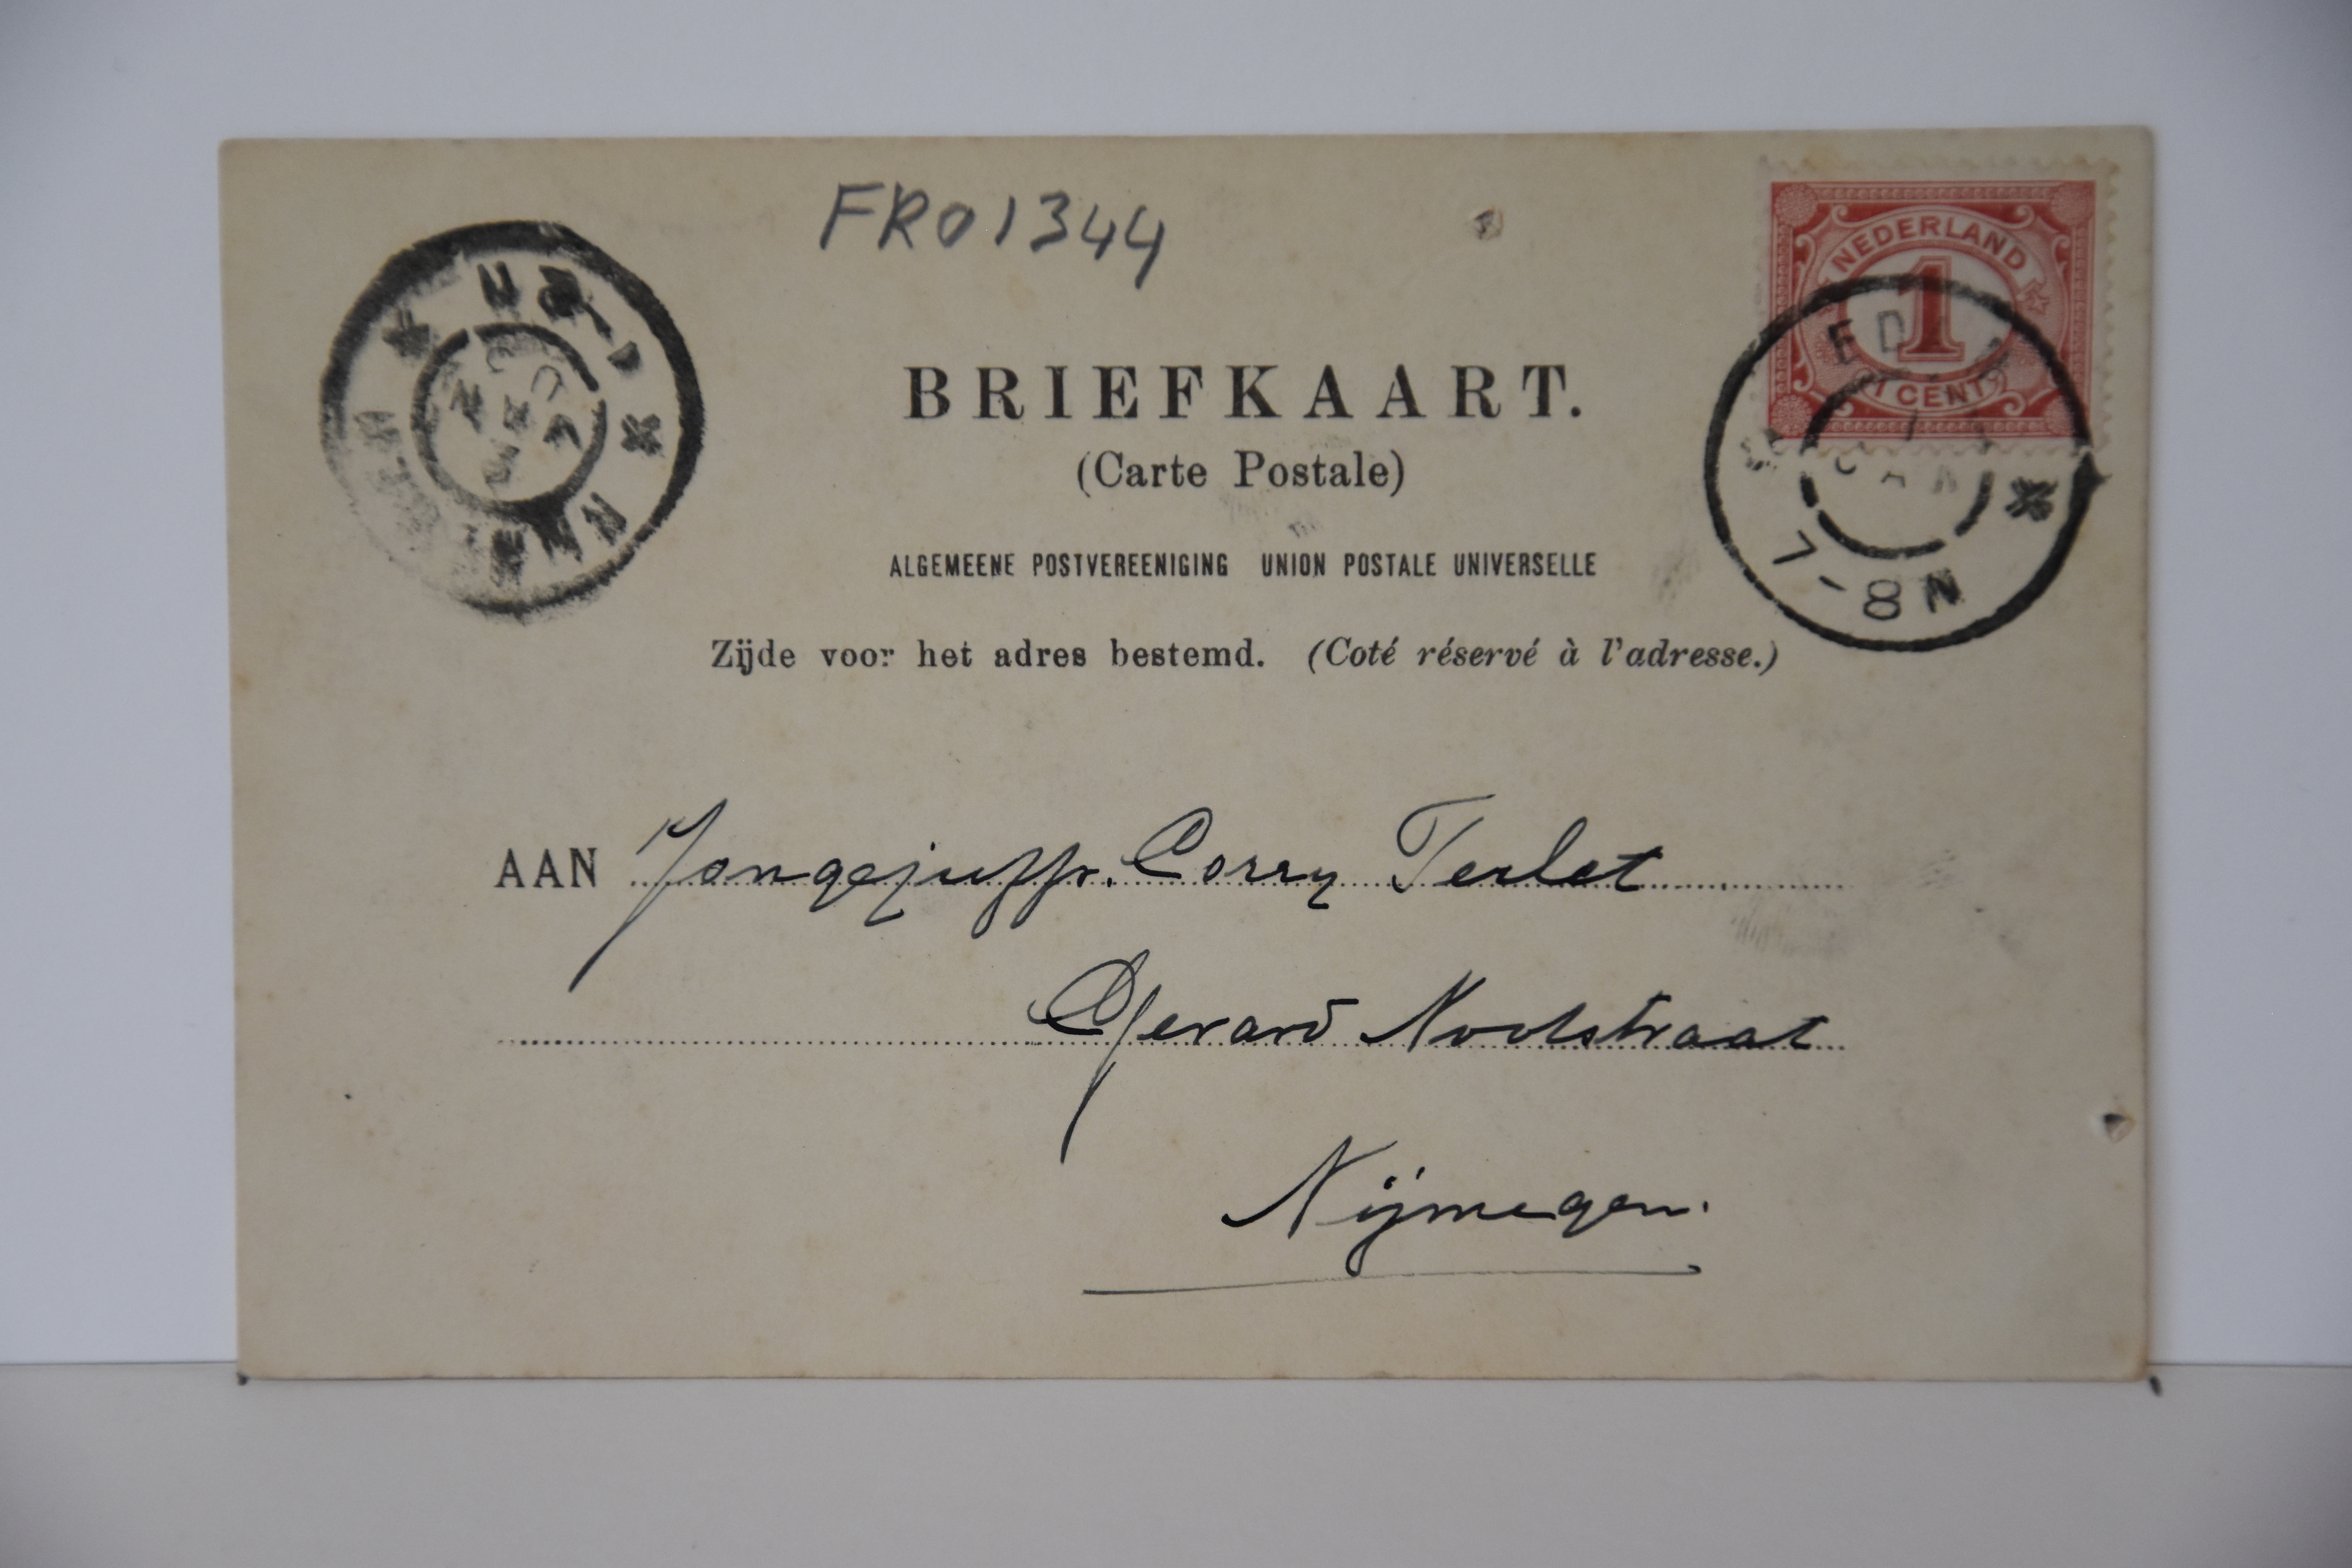 FR01344
NEDERLAND
1
1 CENT
BRIEFKAART.
(Carte Postale)
ALGEMEENE POSTVEREENIGING UNION POSTALE UNIVERSELLE
7-8N
Zijde voor het adres bestemd. (Coté réservé à l'adresse.)
AAN Jongejuffr. Corry Terlet
Gerard Noodstraat
Nijmegen.